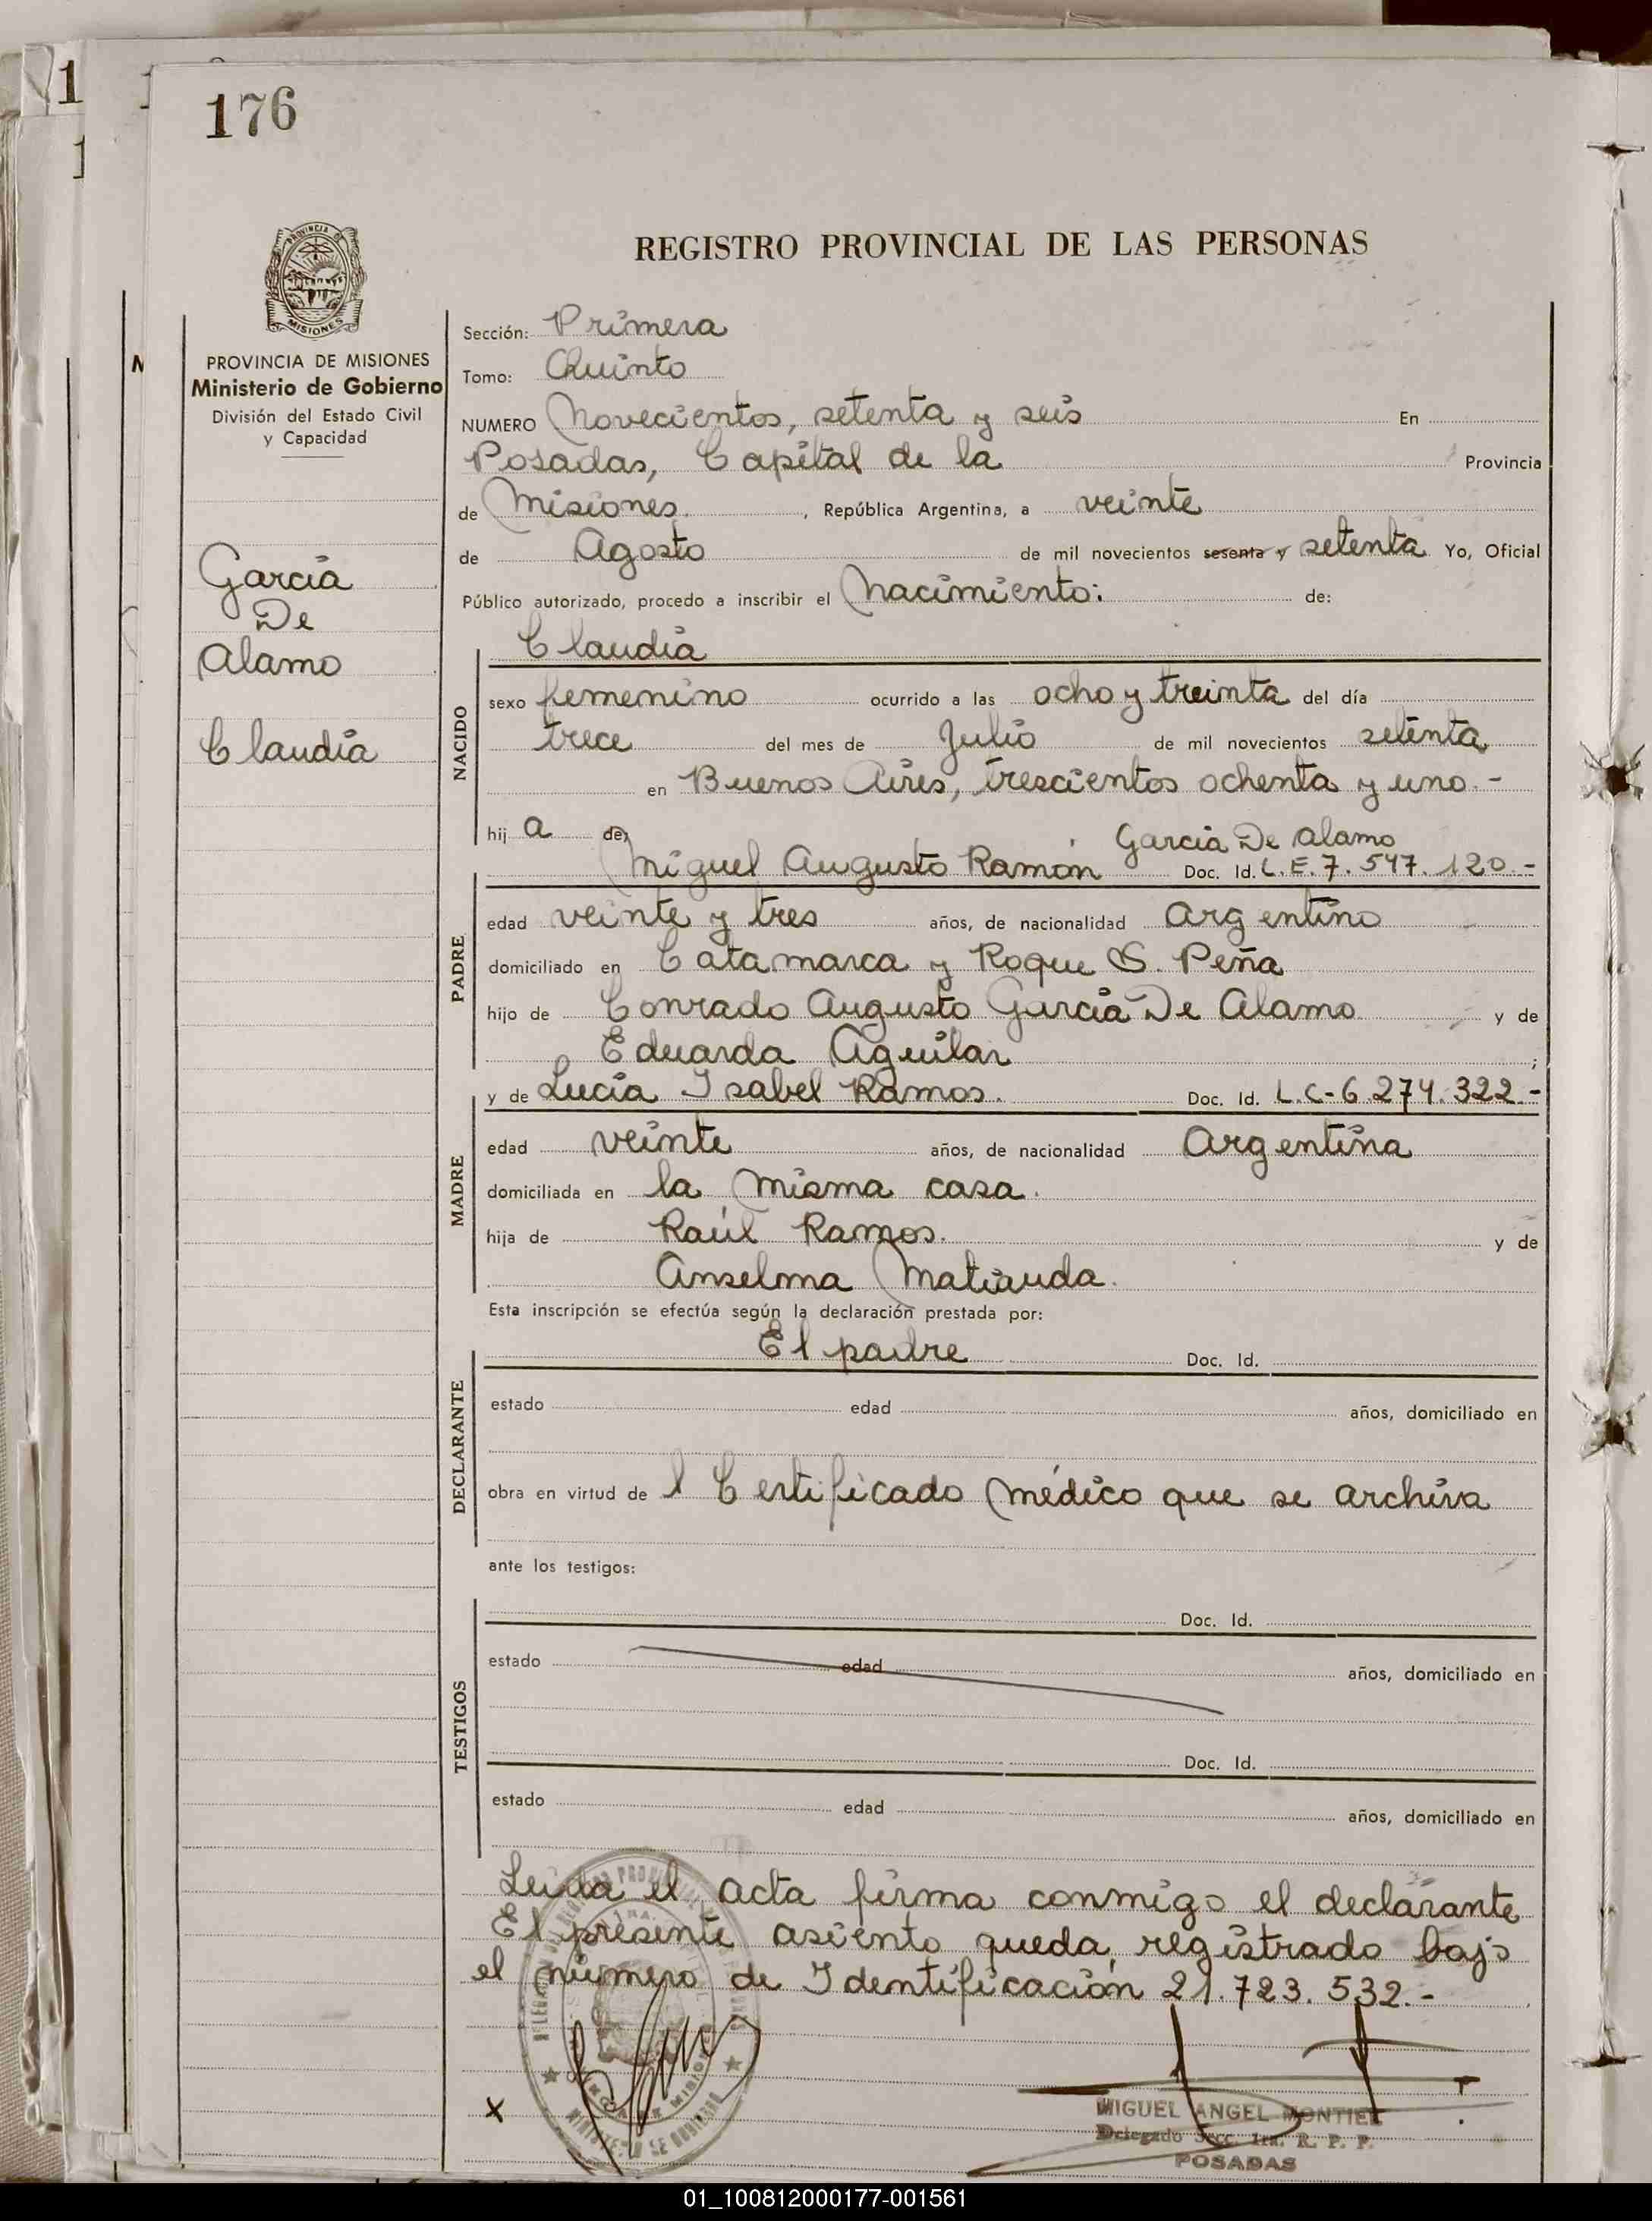 176
REGISTRO PROVINCIAL DE LAS PERSONAS
PROVINCIA DE
MISIONES
PROVINCIA DE MISIONES
Ministerio de Gobierno
División del Estado Civil
y Capacidad
García
De
Alamo
Claudia
Sección: Primera
Tomo: Quinto
NUMERO Novecientos, setenta y seis En
Posadas, Capital de la Provincia
de Misiones. , República Argentina, a veinte
de Agosto de mil novecientos sesenta y setenta Yo, Oficial
Público autorizado, procedo a inscribir el Nacimiento: de:
Claudia
NACIDO
sexo femenino ocurrido a las ocho y treinta del día
trece del mes de Julio de mil novecientos setenta
en Buenos Aires, trescientos ochenta y uno.-
hij a de,
García De Alamo
Miguel Augusto Ramón Doc. Id. L.E. 7.547.120.-
PADRE
edad veinte y tres años, de nacionalidad Argentino
domiciliado en Catamarca y Roque S. Peña
hijo de Conrado Augusto García De Alamo y de
Eduarda Aguilar ;
y de Lucía Isabel Ramos. Doc. Id. L.C-6.274.322.-
MADRE
edad veinte años, de nacionalidad Argentina
domiciliada en la misma casa.
hija de Raúl Ramos. y de
Anselma Matiauda.
Esta inscripción se efectúa según la declaración prestada por:
El padre Doc. Id.
DECLARANTE
estado edad años, domiciliado en
obra en virtud de l Certificado médico que se archiva
ante los testigos:
Doc. Id.
TESTIGOS
estado edad años, domiciliado en
Doc. Id.
estado edad años, domiciliado en
Leida el acta firma conmigo el declarante
El presente asiento queda registrado bajo
el número de Identificación 21.723.532.-
x
MIGUEL ANGEL MONTIEL
Delegado Secc. 1ra. R. P. P.
POSADAS
01_100812000177-001561